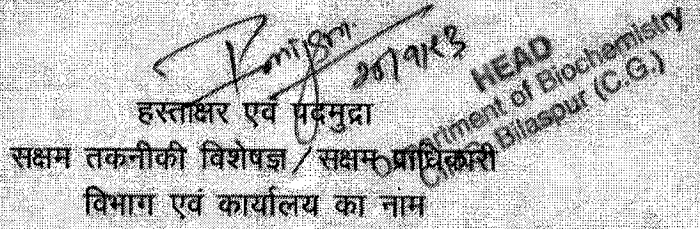 २०/१/२३
HEAD
Department of Biochemistry
CIMS Bilaspur (C.G.)
हस्ताक्षर एवं पदमुद्रा
सक्षम तकनीकी विशेषज्ञ / सक्षम प्राधिकारी
विभाग एवं कार्यालय का नाम